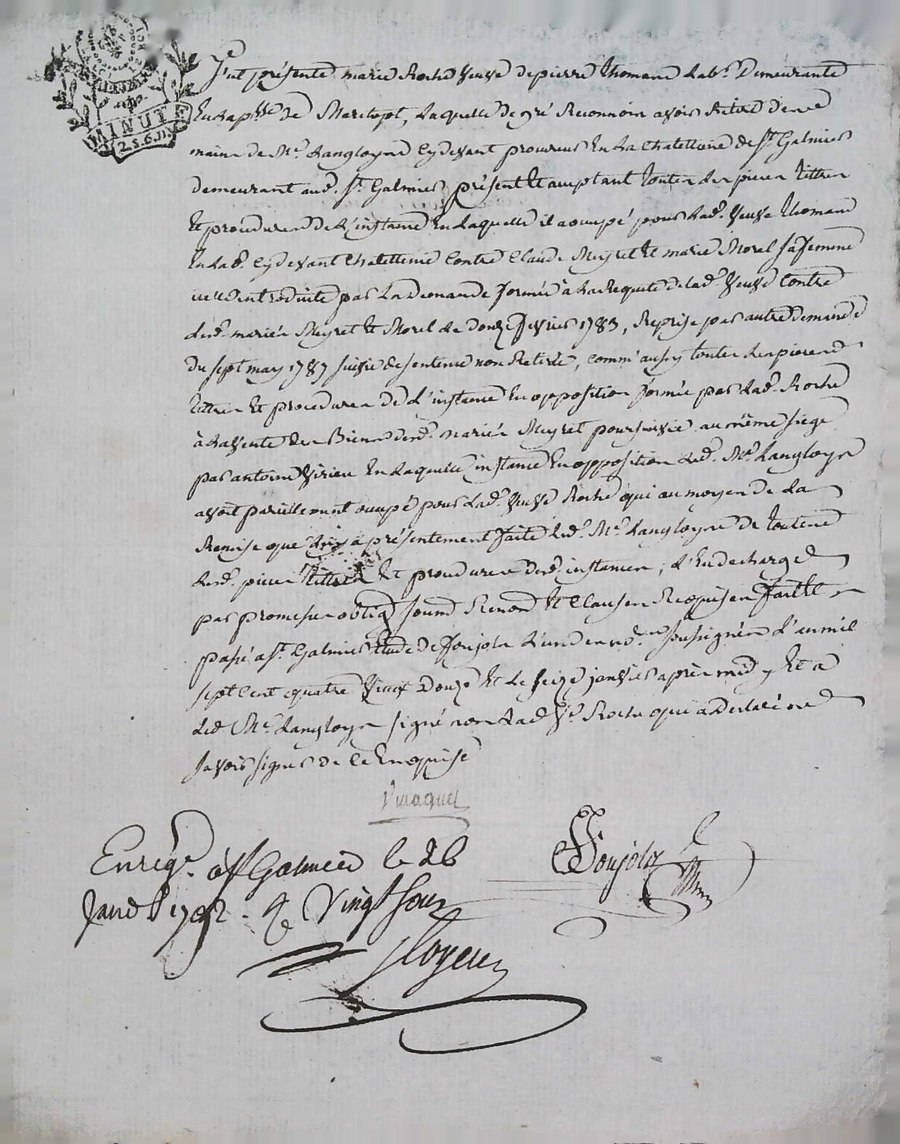 MINUTE
2.S.6.D.
Fut présente marie Roche veuve de pierre thomand Lab.r Demeurante
En la p.sse de Marclopt, Laquelle de gré Reconnoit avoir Retiré d'en
mains de M.e Langloyse Cy devant procureur En La Chatellenie de S.t Galmier
demeurant aud. S.t Galmier présent et acceptant toutes les pieces titres
Et procedures de L'instance En Laquelle il a occupé pour Lad.e veuve thomand
En Lad.e Cy devant Chatellenie Contre Claude Meyret Et marie Morel sa femme
introduite par La demande formée à La Requete de lad.e veuve Contre
lesd. mariés Meyret Et Morel le douze fevrier 1783, Reprise par autre demande
du sept may 1787 suivie de sentence non Retirée, Comm'aussy toutes les pieces
titres Et procedures de L'instance En opposition formée par Lad.e Roche
à La vente des Biens desd. mariés Meyret poursuivie au même siege
par antoine En Laquelle instance En opposition led. M.e Langloyse
avoit pareillement occupé pour Lad.e veuve Roche qui au moyen de La
Remise que luy a présentement faite Led. M.e Langloyse de toutes
Lesd. pieces titres Et procedures desd. instances, L'En decharge
par promesse oblig. soum.s Renon.s Et Clauses Requises fait Et
passé a S.t Galmier Etude de Jonjoly L'un des no.res soussignés L'an mil
sept Cent quatre vingt Douze Et Le seize janvier après midy Et a
Led. M.e Langloyse signé non Lad. v.e Roche qui a Declaré ne
savoir signer de ce Enquise
Enrég.é à S.t Galmier le 26
Janv. 1792. R. Vingt sous